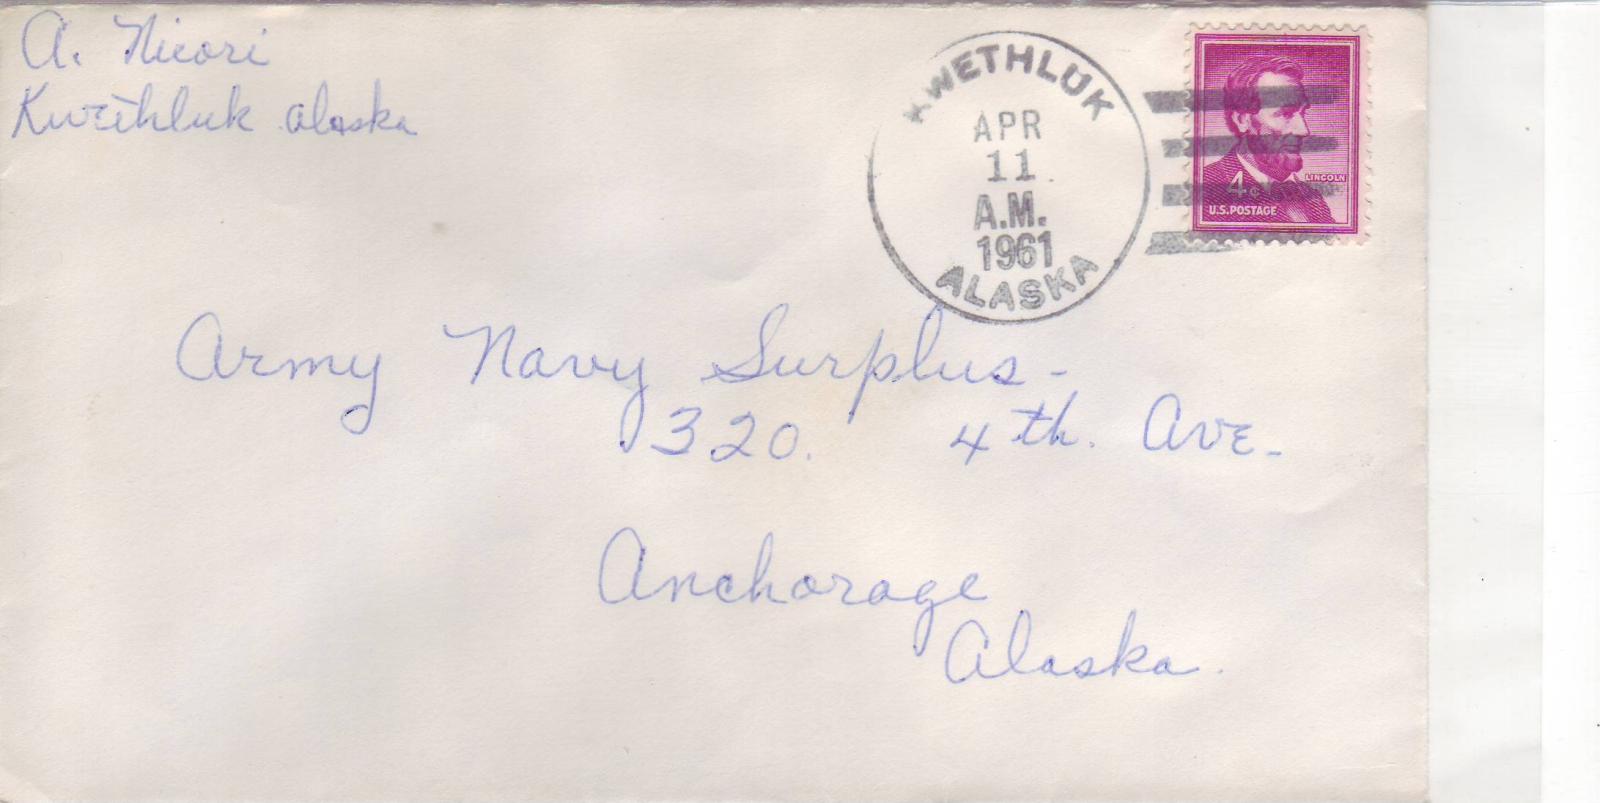 A. Nicori
Kwethluk alaska
KWETHLUK
APR
11
A.M.
1961
ALASKA
LINCOLN
4¢
U.S. POSTAGE
Army Navy Surplus-
320. 4th. Ave.-
Anchorage
Alaska.